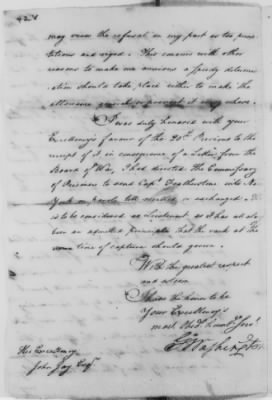 may even the refusal on my part as too
and urged. This concurs with other
reasons to make me anxious a speedy determi-
nation should take place either to make the
allowance general or prevent it every where.
I was duly honored with your
Excellency's favour of the 20th. Previous to the
receipt of it in consequence of a Letter from the
Board of War, I had directed the Commissary
of Prisoners to send Cap. Featherstone into New
York on parole till exchanged. He
is to be considered as Lieutenant as it has al
been an admitted principle that the rank at the
time of capture should govern.
With the greatest respect
and esteem
I have the honor to be
Your Excellency's
most Obed. humb. Serv.
G. Washington
His Excellency
John Jay Esq.